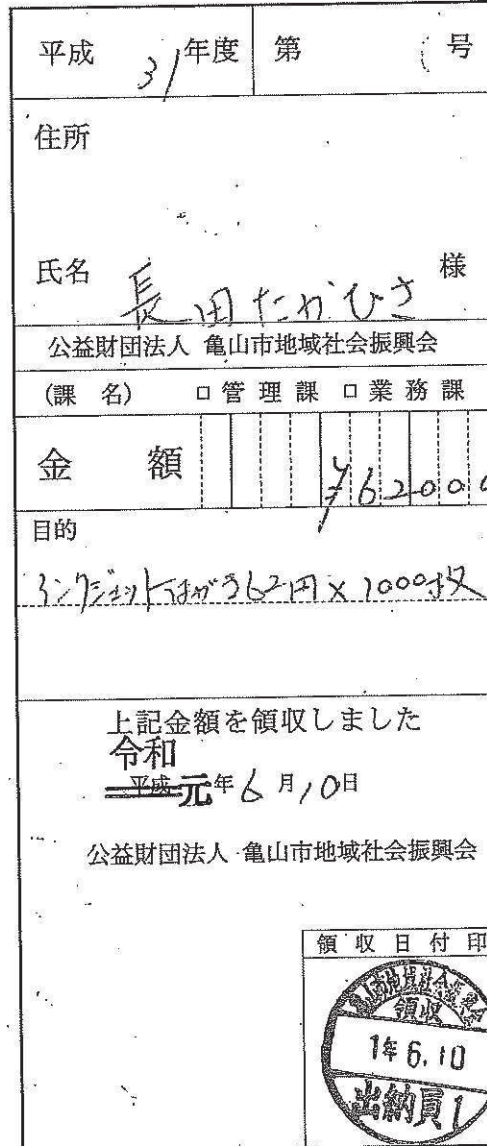 平成 31 年度 第 号
住所
氏名 長田たかひさ 様
公益財団法人 亀山市地域社会振興会
(課 名) □管理課 □業務課
金 額 ¥62000
目的
インクジェットはがき62円×1000枚
上記金額を領収しました
令和
平成元年6月10日
公益財団法人 亀山市地域社会振興会
領収日付印
亀山市地域社会振興会
領収
1年6.10
出納員1